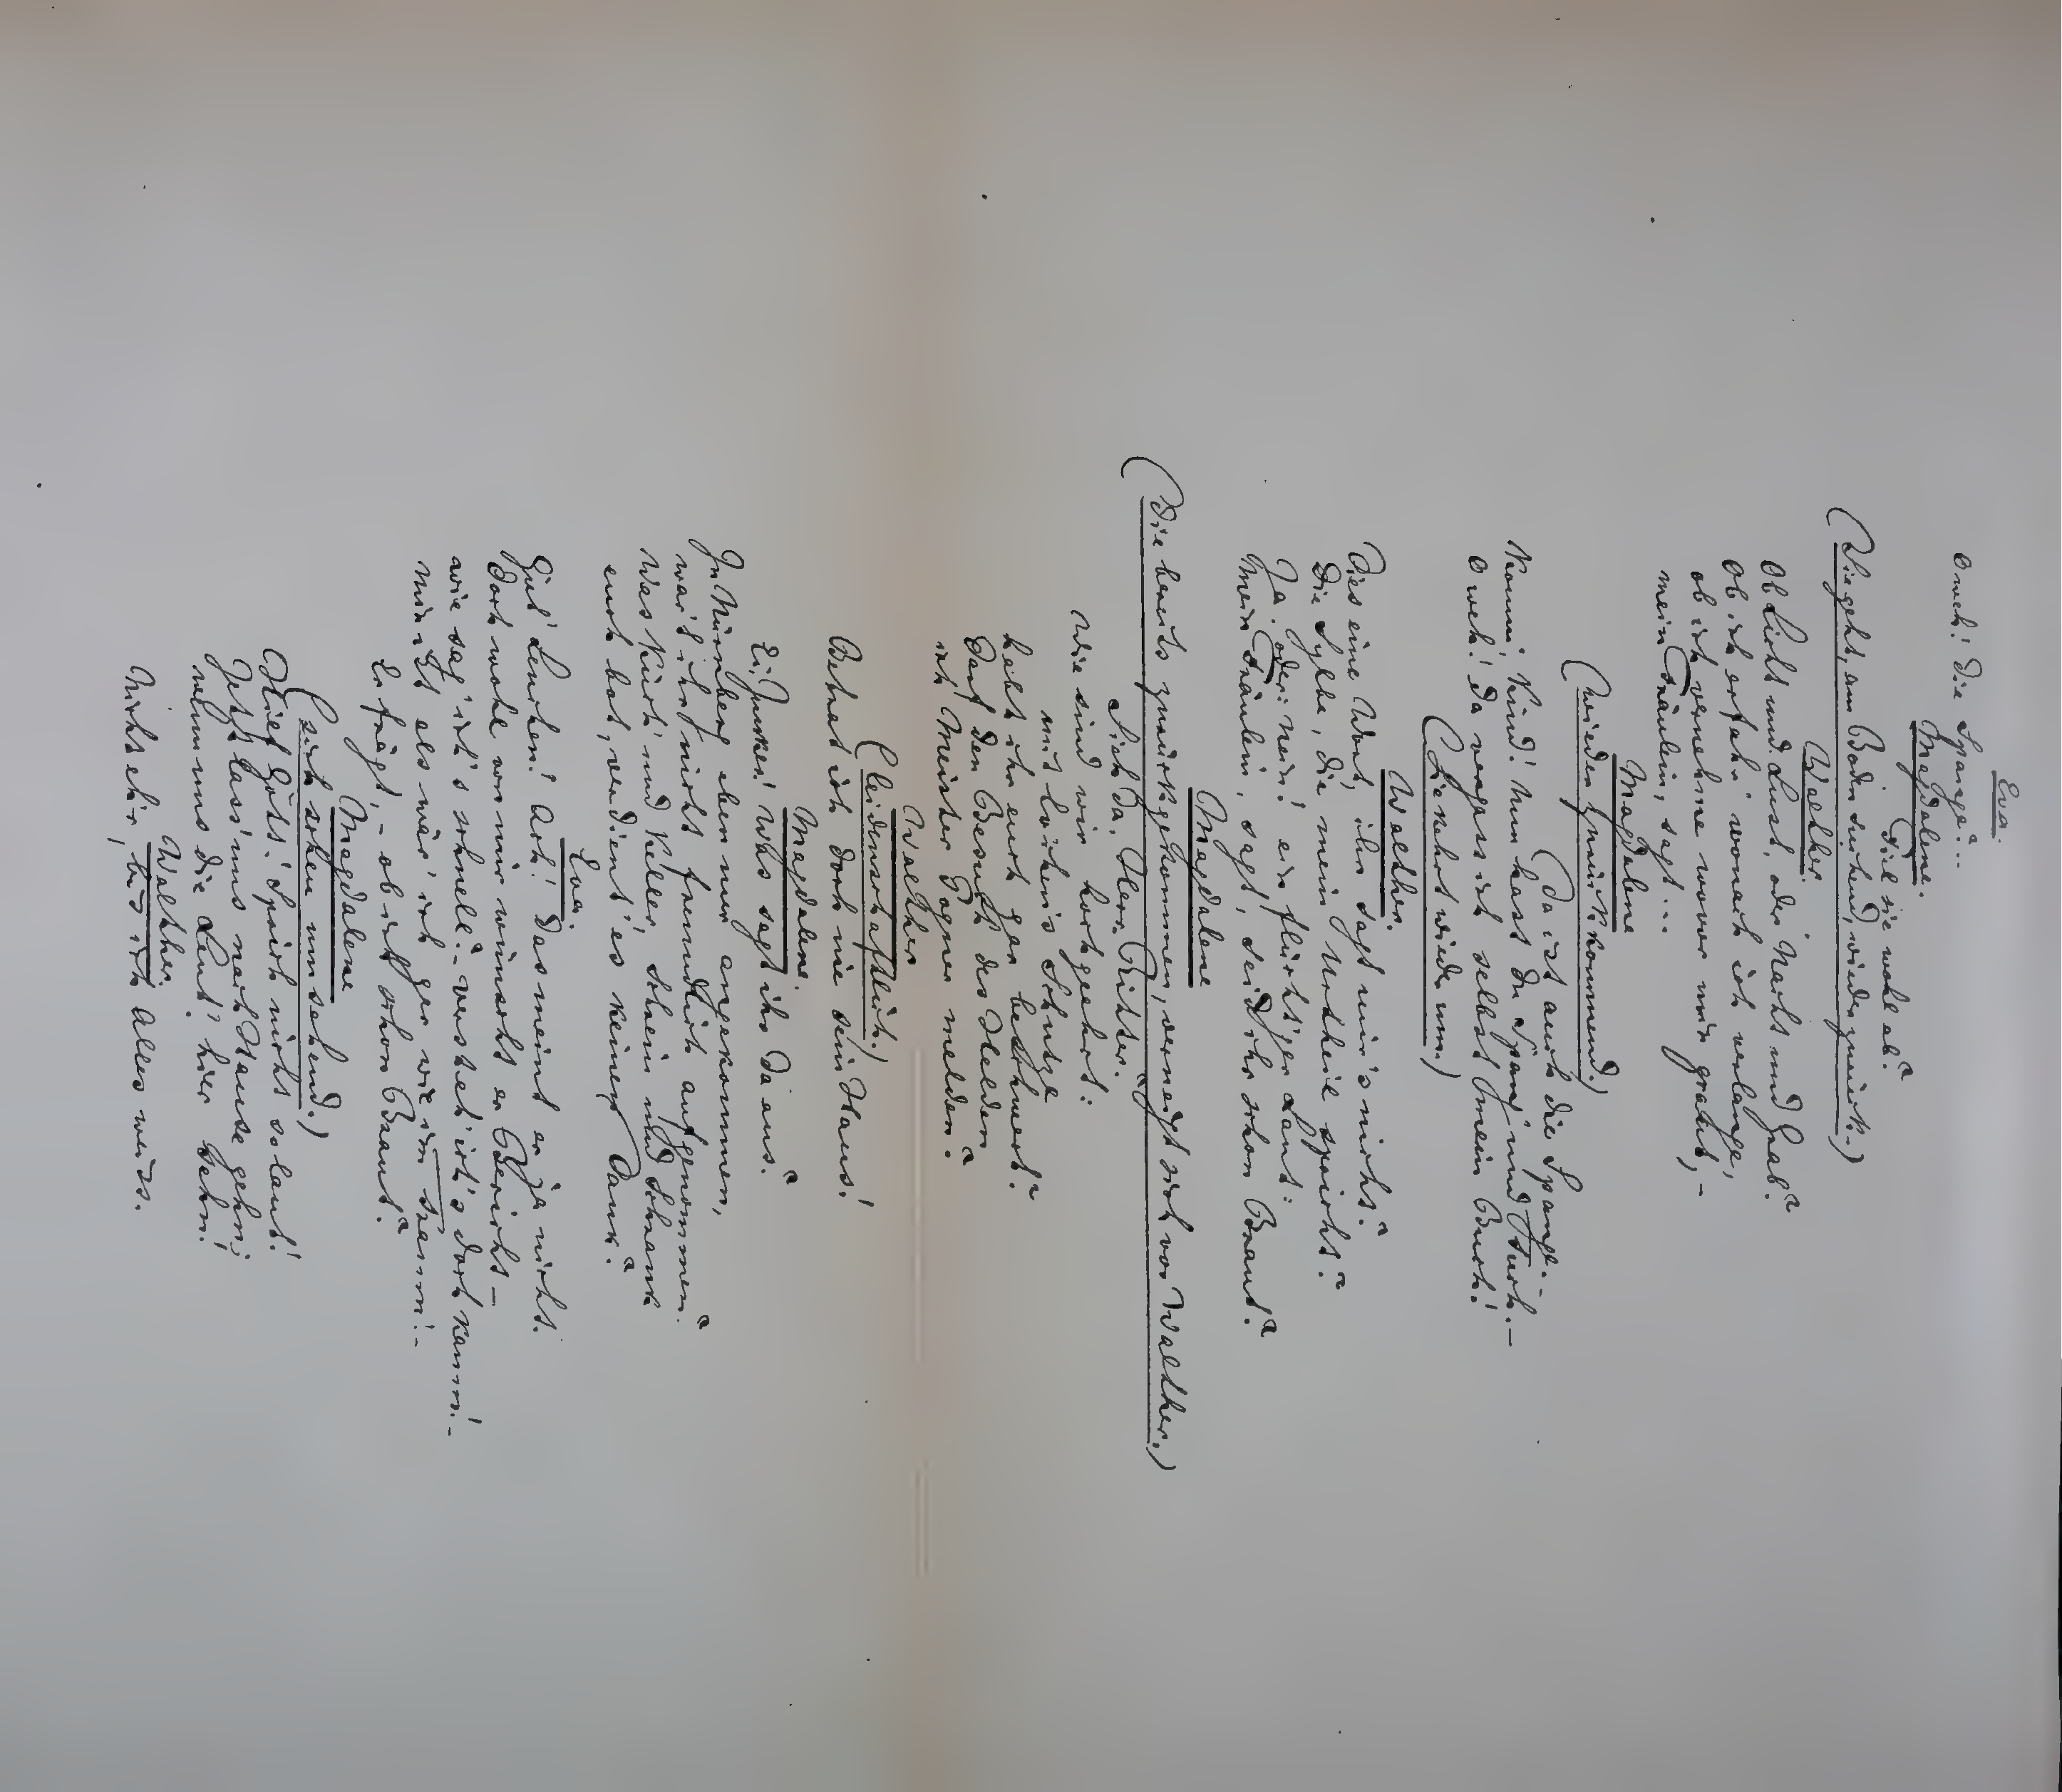 Eva.
O weh! Die Spange?...
Magdalene.
Fiel sie wohl ab?
(Sie geht, am Boden suchend, wieder zurück.)
Walther.
Ob Licht und Lust, oder Nacht und Grab?
Ob ich erfahr' wonach ich verlange,
ob ich vernehme wovor mir graut, –
mein Fräulein, sagt ...
Magdalene
(wieder zurückkommend.)
Da ist auch die Spange. –
Komm', Kind! Nun hast du Spang' und Tuch. –
O weh! da vergass ich selbst mein Buch!
(Sie kehrt wieder um.)
Walther.
Dies eine Wort, ihr sagt mir's nicht?
Die Sylbe, die mein Urtheil spricht?
Ja, oder: Nein! ein flücht'ger Laut:
mein Fräulein, sagt, seid ihr schon Braut?
Magdalene
(die bereits zurückgekommen, verneigt sich vor Walther.)
Sieh da, Herr Ritter?
Wie sind wir hochgeehrt:
mit Evchens Schutze
habt ihr euch gar beschwert?
Darf den Besuch des Helden
ich Meister Pogner melden?
Walther
(leidenschaftlich.)
Betrat ich doch nie sein Haus!
Magdalene.
Ei, Junker! Was sagt ihr da aus?
In Nürnberg eben nur angekommen,
war't ihr nicht freundlich aufgenommen?
Was Küch' und Keller, Schrein und Schrank
euch bot, verdient' es keinen Dank?
Eva.
Gut' Lenchen! Ach! das meint er ja nicht.
Doch wohl von mir wünscht er Bericht –
wie sag' ich's schnell? – versteh' ich's doch kaum! –
Mir ist als wär' ich gar wie im Traum! –
Er frägt, – ob ich schon Braut?
Magdalene
(sich scheu umsehend.)
Hilf Gott! Sprich nicht so laut!
Jetzt lass' uns nach Hause gehn;
wenn uns die Leut' hier sehn!
Walther.
Nicht ehr, bis ich Alles weiss.